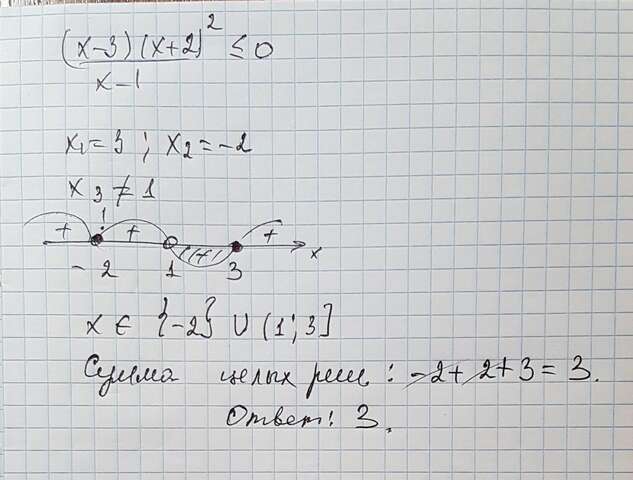 (x-3)(x+2)² ≤ 0
x-1
x₁=3 ; x₂=-2
x₃≠1
+ + + x
-2 1 3
x ∈ {-2} ∪ (1; 3]
Сумма целых реш: -2+2+3=3.
Ответ: 3.